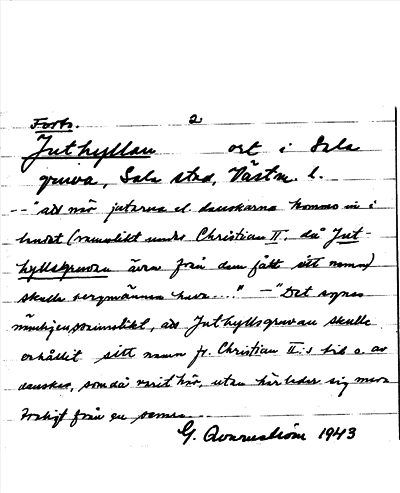 Forts. 2
Juthyllan ort i Sala
gruva, Sala stad, Västm. l.
--"att när jutarna el. danskarna kommo in i
landet (sannolikt under Christian II, då Jut-
hyllsgruvan även från dem fått sitt namn)
skulle bergmännen hava ..." – "Det synes
mindre sannolikt, att Juthyllsgruvan skulle
erhållit sitt namn fr. Christian II:s tid o. av
danskar, som då varit här, utan härleder sig mera
troligt från en senare ...
G. Qvarnström 1943